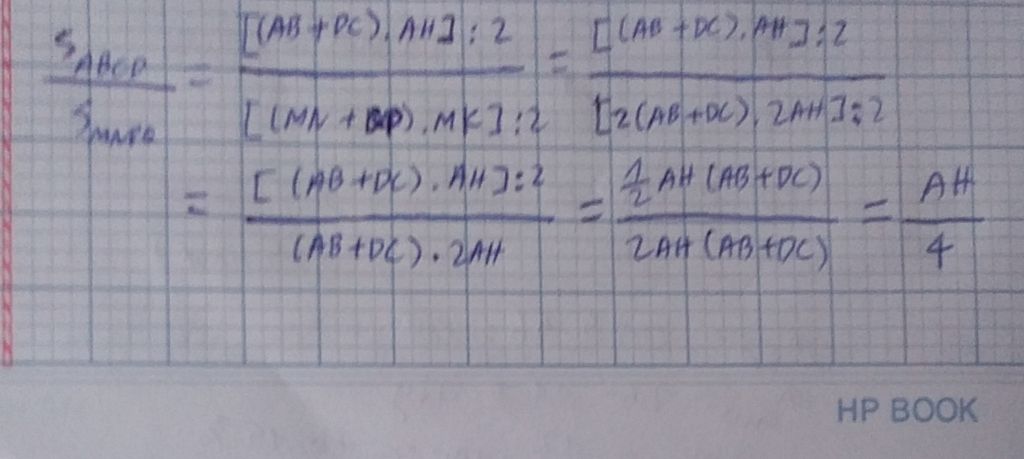 S_ABCD / S_MNPQ = [(AB + DC).AH]:2 / [(MN + QP).MK]:2 = [(AB + DC).AH]:2 / [2(AB+DC).2AH]:2
= [(AB+DC).AH]:2 / (AB+DC).2AH = 1/2 AH (AB+DC) / 2AH (AB+DC) = AH / 4
HP BOOK